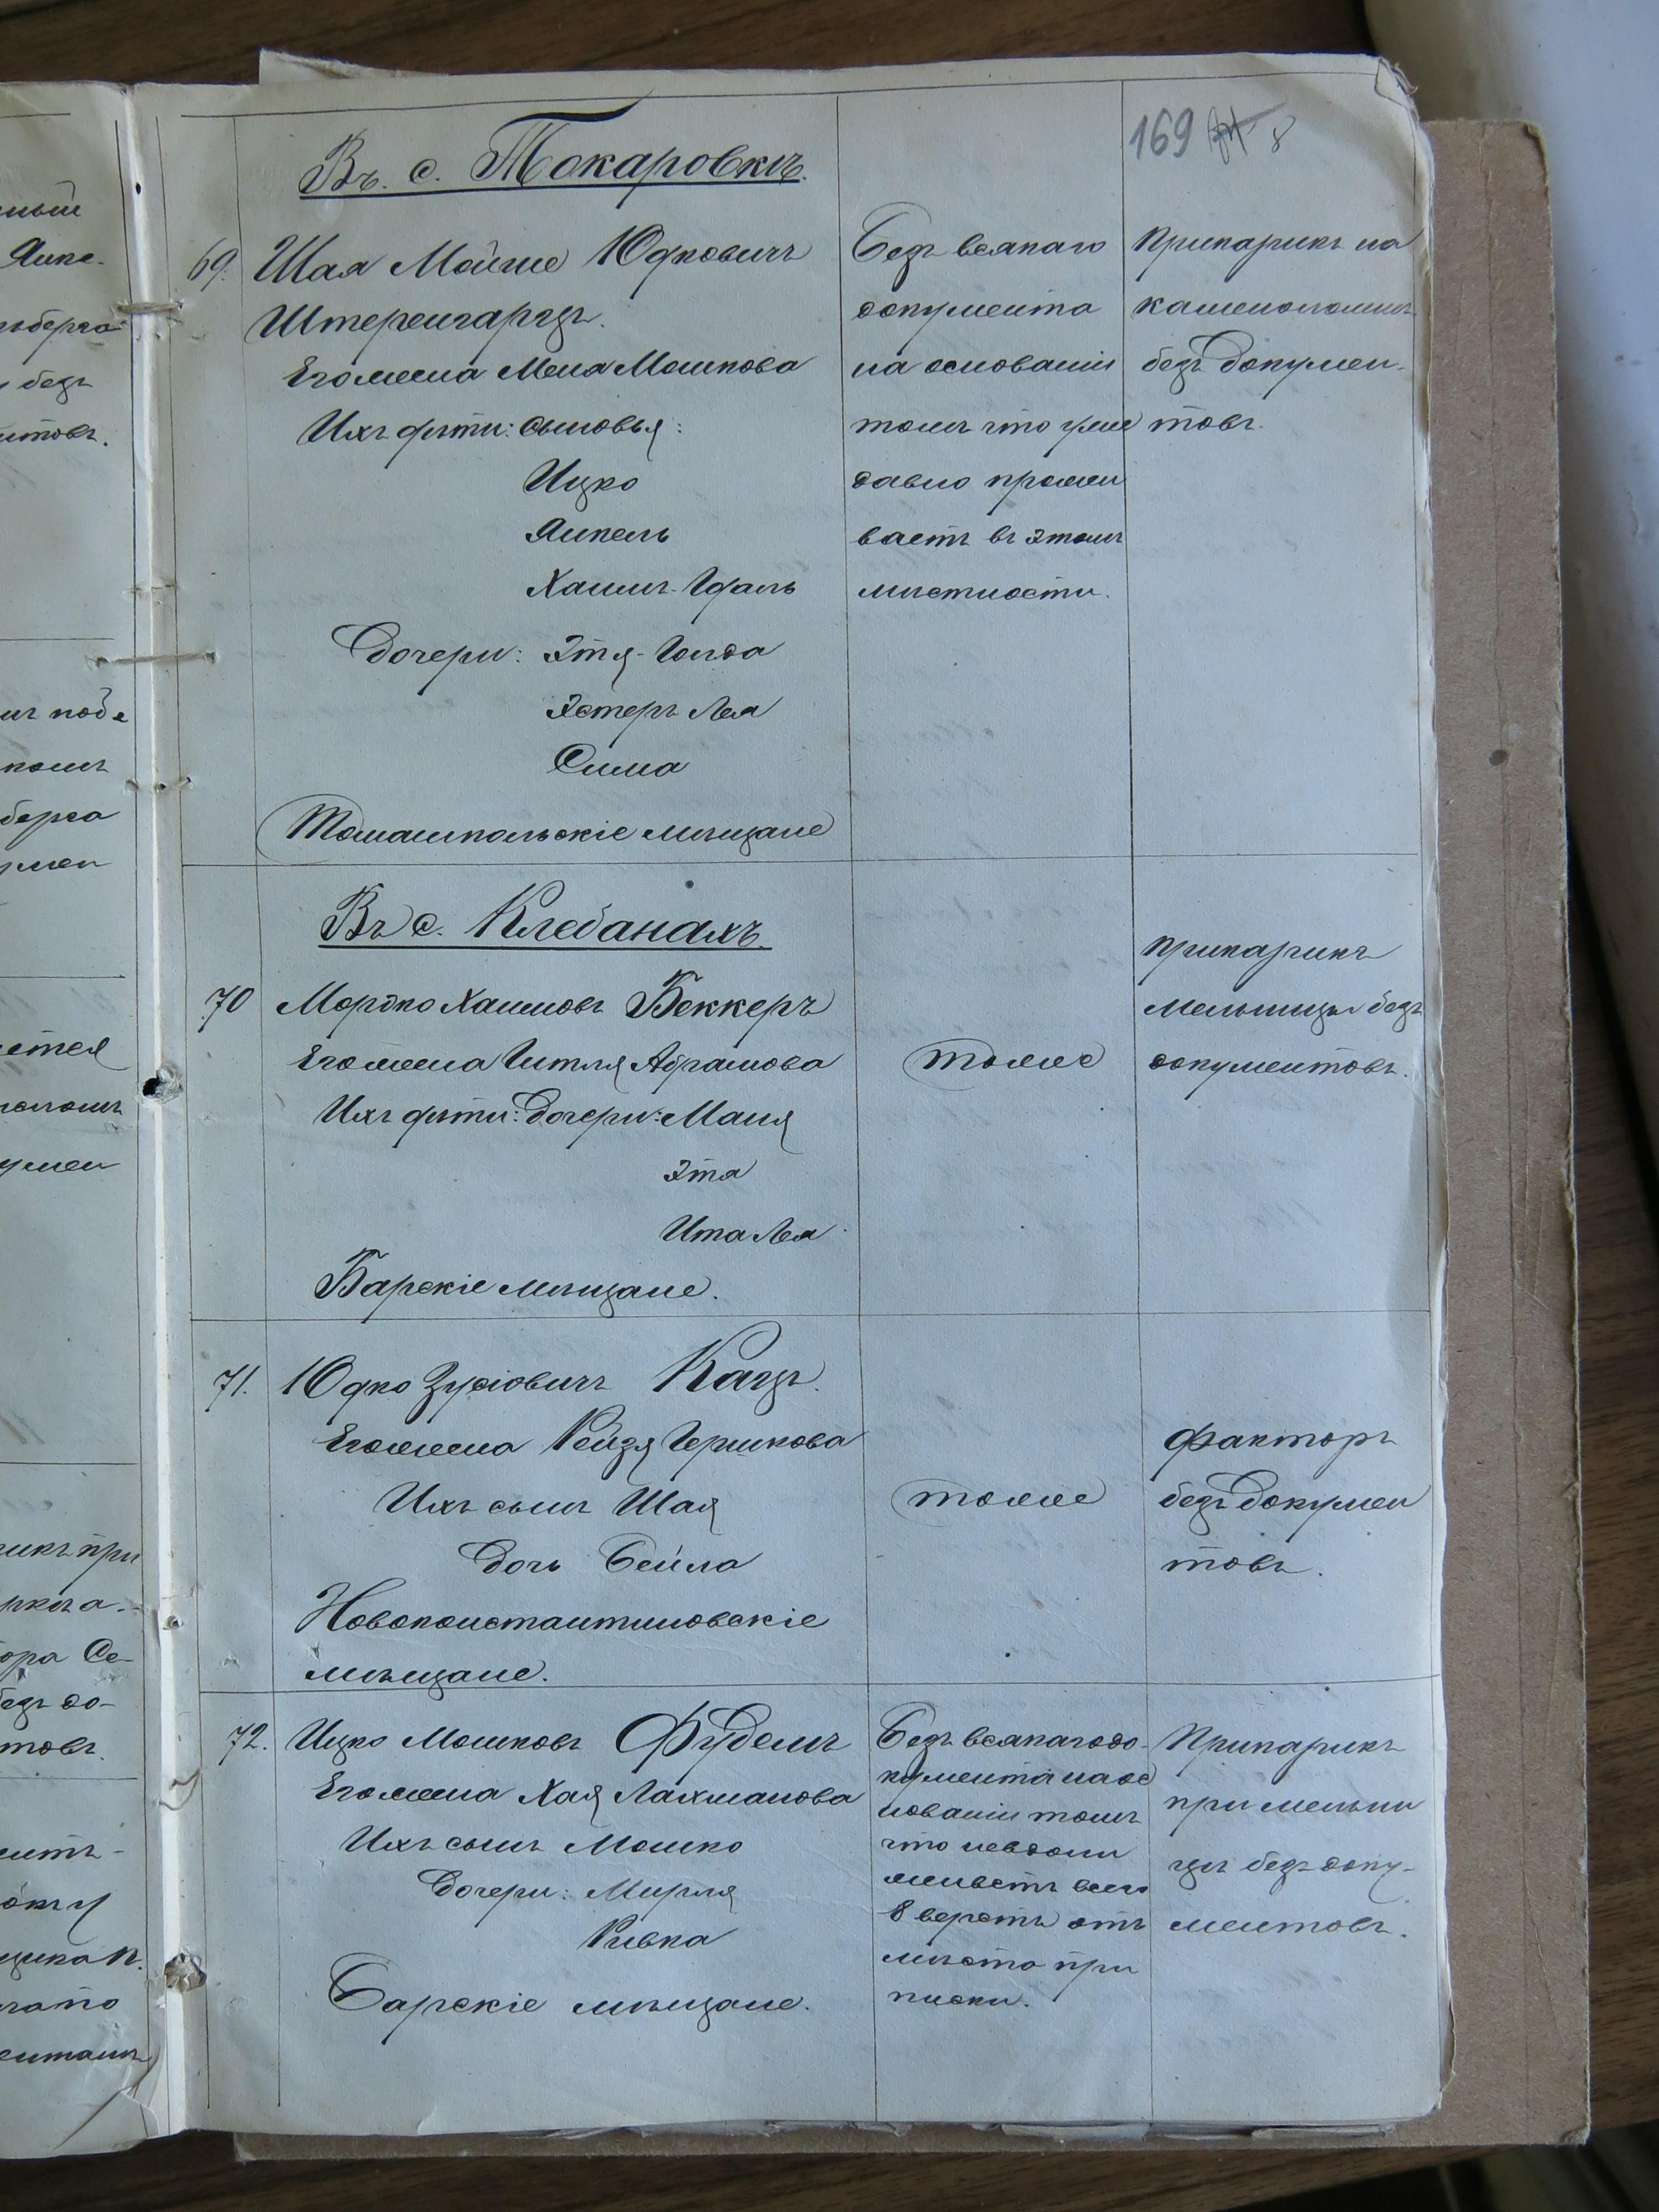 169 8
Въ с. Токаровкѣ.
69. Шая Мойше Юдковичъ
Штеренгарцъ.
Его жена Меня Мошкова
Ихъ дѣти: сыновья:
Ицко
Янкель
Хаимъ-Удаль
Дочери: Этя-Голда
Эстеръ Лея
Сима
Томашпольскіе мѣщане
Безъ всякаго
документа
на основаніи
томъ что уже
давно прожи
ваетъ въ этомъ
мѣстности.
Прикащикъ на
каменоломнѣ
безъ докумен-
товъ.
Въ с. Клебанахъ.
70 Мордко Хаимовъ Беккеръ
Его жена Гитля Абрамова
Ихъ дѣти: Дочери: Маня
Эта
Ита Лея
Барскіе мѣщане.
тоже
прикащикъ
мельницы безъ
документовъ.
71. Юдко Зусіовичъ Кацъ.
Его жена Рейзя Гершкова
Ихъ сынъ Шая
Дочь Бейла
Новоконстантиновскіе
мѣщане.
тоже
факторъ
безъ докумен
товъ.
72. Ицко Мошковъ Фудемъ
Его жена Хая Лахманова
Ихъ сынъ Мошко
Дочери: Мирля
Ривка
Барскіе мѣщане.
Безъ всякаго до-
кумента на ос
нованіи томъ
что
живетъ всего
8 верстъ отъ
мѣста при
писки.
Прикащикъ
при мельни
цѣ безъ доку-
ментовъ.